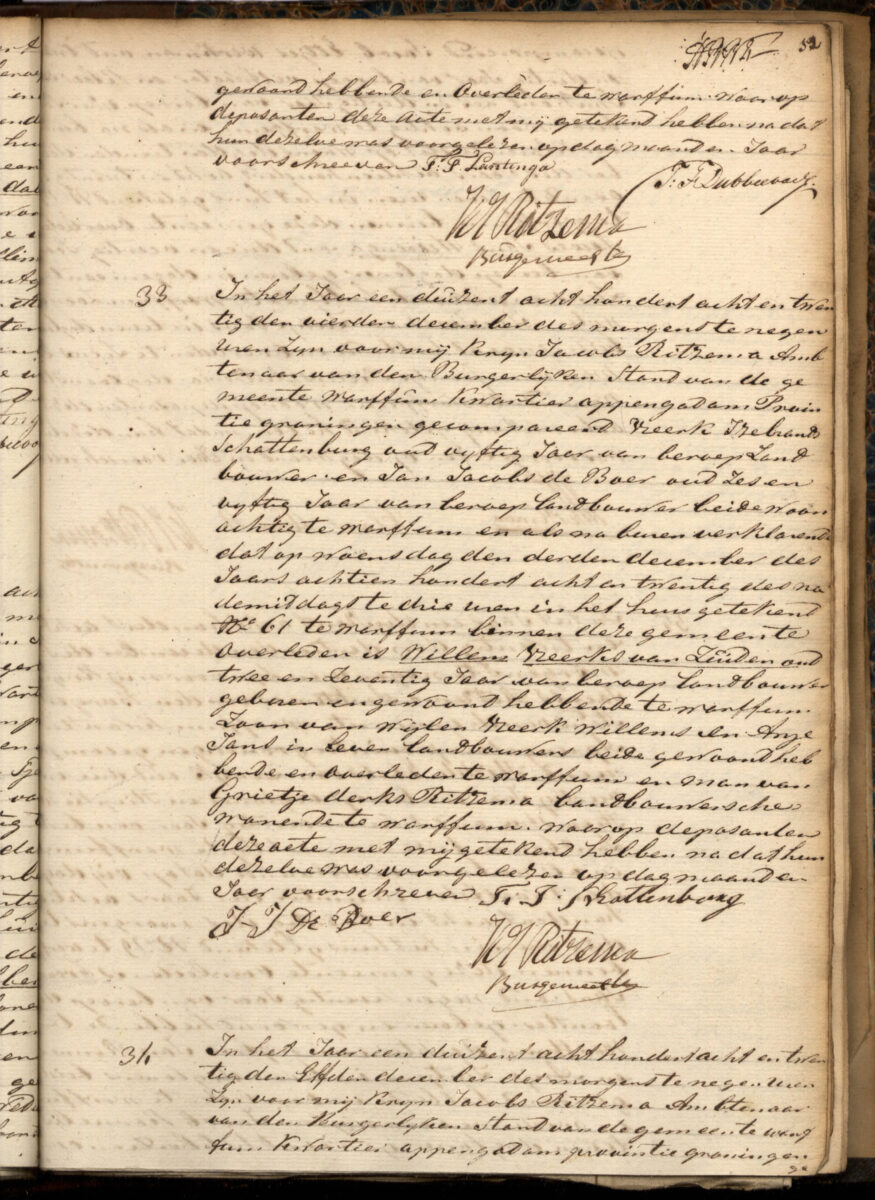 52
gewoond hebbende en Overleden te warffum waar op
deposanten deze acte met mij getekend hebben na dat
hun dezelve was voorgelezen op dag maand en Jaar
voorschreeven F: F Lantinga
T: F Dubbeboer.
K J Ritzema
Burgemeester
33 In het Jaar een duizent acht hondert acht en twen
tig den vierden december des morgens te negen
uren Zyn voor mij Kryn Jacobs Ritzema Amb
tenaar van den Burgerlyken Stand van de ge
meente warffum Kwartier appengadam Provin
tie groningen gecompareerd Freerk Izebrands
Schattenburg oud vyftig Jaar van beroep Land
bouwer en Jan Jacobs de Boer oud Zes en
vyftig Jaar van beroep Landbouwer beide woon
achtig te warffum en als na buren verklarende
dat op woensdag den derden december des
Jaars achtien hondert acht en twentig des na
demiddags te drie uren in het huis getekend
No 61 te warffum binnen deze gemeente
overleden is Willem Freerks van Zuiden oud
twee en Zeventig Jaar van beroep Landbouwer
geboren en gewoond hebbende te warffum
Zoon van wijlen Freerk Willems en Anje
Jans in Leven Landbouwers beide gewoond heb
bende en overleden te warffum en man van
Grietje derks Ritzema Landbouwersche
wonende te warffum. waar op deposanten
deze acte met mij getekend hebben na dat hun
dezelve was voorgelezen op dag maand en
Jaar voorschreven F. I: Schattenburg
J J De Boer
K J Ritzema
Burgemeester
34 In het Jaar een duizent acht hondert acht en twen
tig den Elfden december des morgens te negen uren
Zyn voor mij Kryn Jacobs Ritzema Ambtenaar
van den Burgerlyken Stand van de gemeente warf
fum Kwartier appengadam provintie groningen
ge